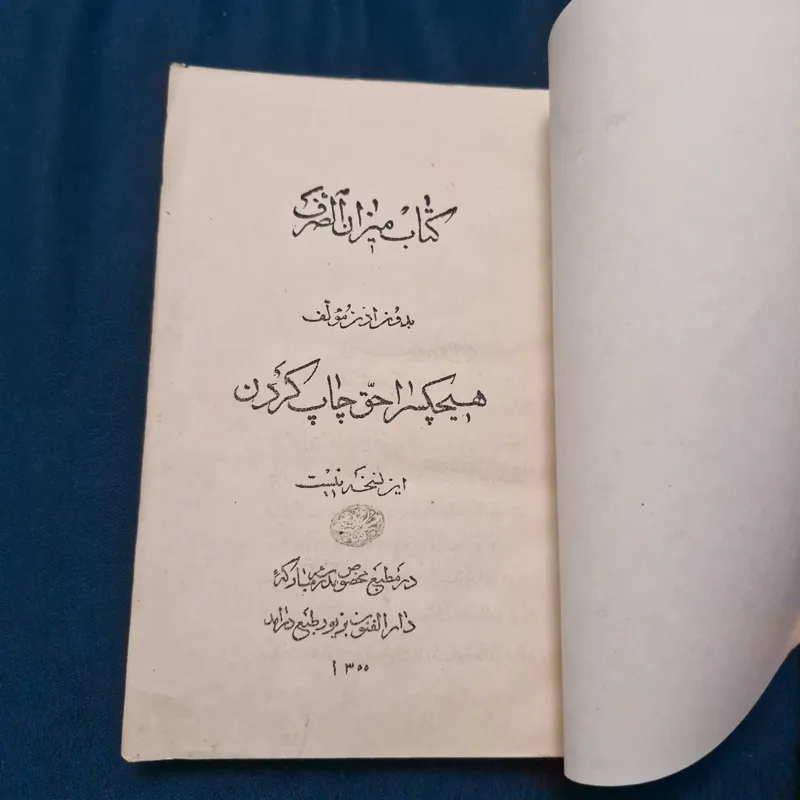 کتاب میزان الصرف
بدون اذن مؤلّف
هیچکس را حقّ چاپ کردن
این نسخه نیست
در مطبع مخصوص مدرسه مبارکهٔ
دارالفنون بزیور طبع درآمد
۱۳۰۰